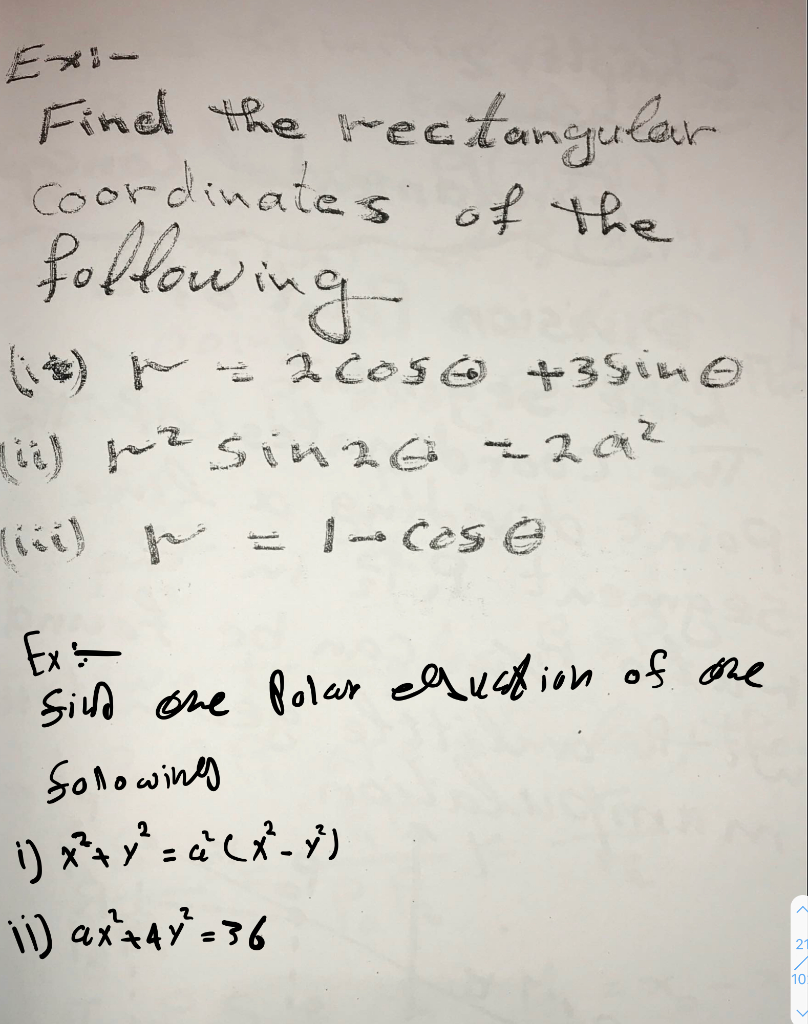 Ex:-
Find the rectangular
coordinates of the
following
(i) r = 2cosθ +3sinθ
(ii) r² sin2θ = 2a²
(iii) r = 1-cosθ
Ex:-
find the Polar equation of the
following
i) x²+y² = a²(x²-y²)
ii) ax²+4y²=36
21
10